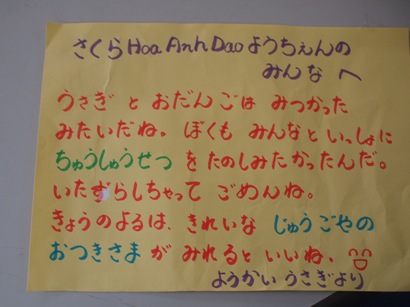 さくらHoa Anh Daoようちえんの
みんなへ
うさぎ と おだんごは みつかった
みたいだね。ぼくも みんなと いっしょに
ちゅうしゅうせつ を たのしみたかったんだ。
いたずらしちゃって ごめんね。
きょうのよるは、きれいな じゅうごやの
おつきさま が みれると いいね。
ようかい うさぎより